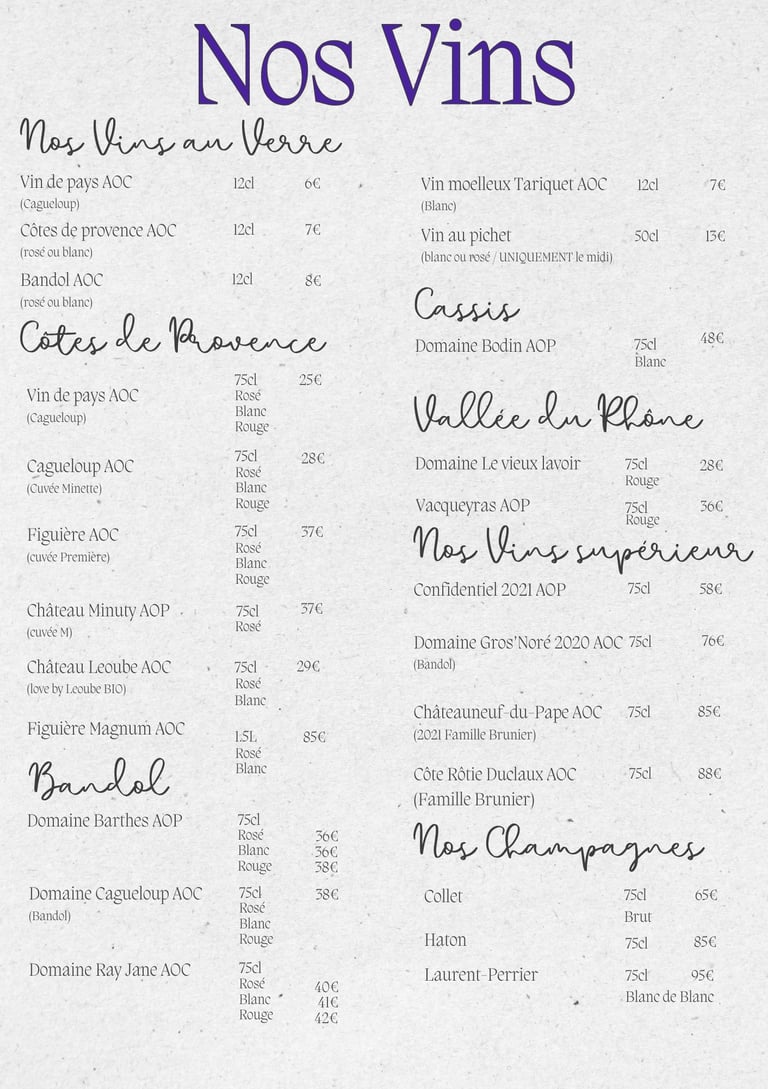 Nos Vins
Nos Vins au Verre
Vin de pays AOC 12cl 6€
(Cagueloup)
Côtes de provence AOC 12cl 7€
(rosé ou blanc)
Bandol AOC 12cl 8€
(rosé ou blanc)
Côtes de Provence
75cl 25€
Vin de pays AOC Rosé
Blanc
(Cagueloup) Rouge
75cl 28€
Cagueloup AOC Rosé
(Cuvée Minette) Blanc
Rouge
Figuière AOC 75cl 37€
Rosé
(cuvée Première) Blanc
Rouge
Château Minuty AOP 75cl 37€
(cuvée M) Rosé
Château Leoube AOC 75cl 29€
(love by Leoube BIO) Rosé
Blanc
Figuière Magnum AOC 1.5L 85€
Rosé
Blanc
Bandol
Domaine Barthes AOP 75cl
Rosé 36€
Blanc 36€
Rouge 38€
Domaine Cagueloup AOC 75cl 38€
(Bandol) Rosé
Blanc
Rouge
Domaine Ray Jane AOC 75cl
Rosé 40€
Blanc 41€
Rouge 42€
Vin moelleux Tariquet AOC 12cl 7€
(Blanc)
Vin au pichet 50cl 13€
(blanc ou rosé / UNIQUEMENT le midi)
Cassis
Domaine Bodin AOP 75cl 48€
Blanc
Vallée du Rhône
Domaine Le vieux lavoir 75cl 28€
Rouge
Vacqueyras AOP 75cl 36€
Rouge
Nos Vins supérieur
Confidentiel 2021 AOP 75cl 58€
Domaine Gros'Noré 2020 AOC 75cl 76€
(Bandol)
Châteauneuf-du-Pape AOC 75cl 85€
(2021 Famille Brunier)
Côte Rôtie Duclaux AOC 75cl 88€
(Famille Brunier)
Nos Champagnes
Collet 75cl 65€
Brut
Haton 75cl 85€
Laurent-Perrier 75cl 95€
Blanc de Blanc